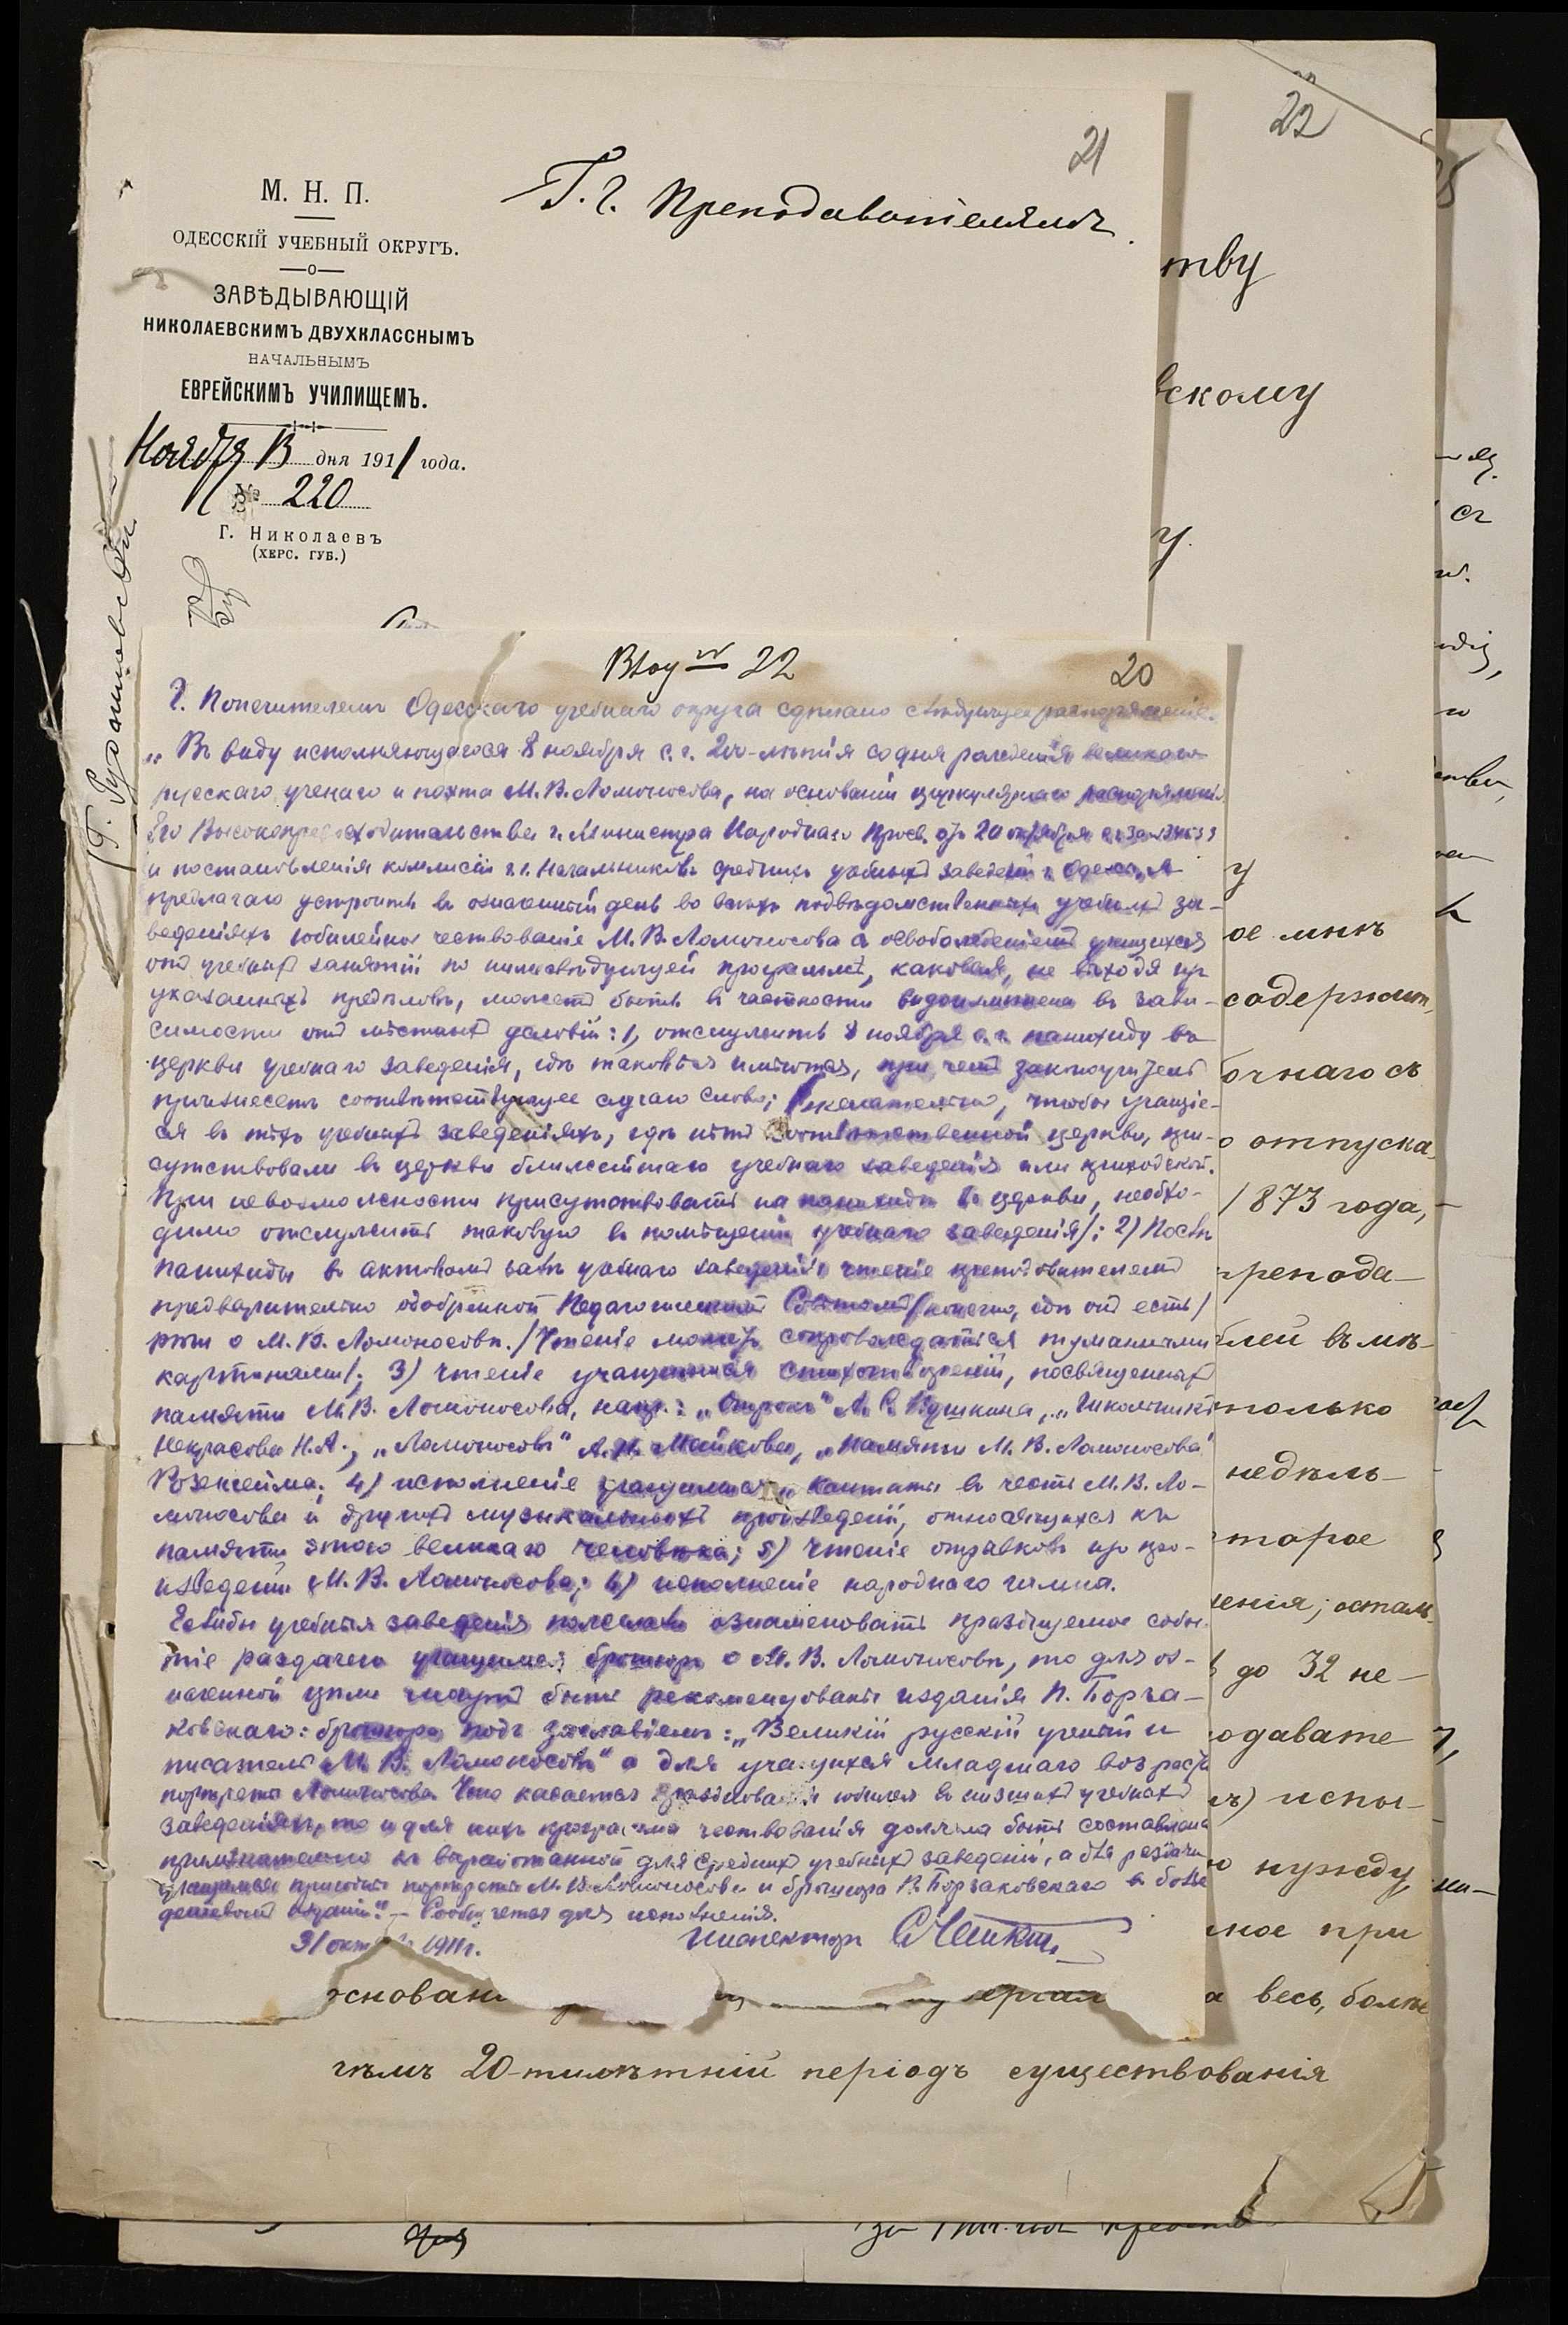 22
21
М. Н. П.
ОДЕССКІЙ УЧЕБНЫЙ ОКРУГЪ.
ЗАВѢДЫВАЮЩІЙ
НИКОЛАЕВСКИМЪ ДВУХКЛАССНЫМЪ
НАЧАЛЬНЫМЪ
ЕВРЕЙСКИМЪ УЧИЛИЩЕМЪ.
Ноября 13 дня 1911 года.
№ 220
Г. Николаевъ
(ХЕРС. ГУБ.)
Г.г. Преподавателямъ.
тву
скому
у.
20
Г. Попечителемъ Одесскаго учебнаго округа сдѣлано слѣдующее распоряженіе:
„Въ виду исполняющагося 8 ноября с. г. 200-лѣтія со дня рожденія великаго
русскаго ученаго и поэта М. В. Ломоносова, на основаніи циркулярнаго распоряженія
Его Высокопревосходительства г. Министра Народнаго Просв. отъ 20 октября с. г. за №
и постановленія коммисіи г. г. Начальниковъ среднихъ учебныхъ заведеній г. Одессы, я
предлагаю устроить въ означенный день во всѣхъ подвѣдомственныхъ учебныхъ за-
веденіяхъ юбилейное чествованіе М. В. Ломоносова съ освобожденіемъ учащихся
отъ учебныхъ занятій по нижеслѣдующей программѣ, каковая, не выходя изъ
указанныхъ предѣловъ, можетъ быть въ частности видоизмѣнена въ зави-
симости отъ мѣстныхъ условій: 1) отслужить 8 ноября с. г. панихиду въ
церкви учебнаго заведенія, гдѣ таковыя имѣются, при чемъ законоучитель
произнесетъ соотвѣтствующее случаю слово; /желательно, чтобы учащіе-
ся въ тѣхъ учебныхъ заведеніяхъ, гдѣ нѣтъ собственной церкви, при-
сутствовали въ церкви ближайшаго учебнаго заведенія или приходской.
При невозможности присутствовать на панихидѣ въ церкви, необхо-
димо отслужить таковую въ помѣщеніи учебнаго заведенія/; 2) Послѣ
панихиды въ актовомъ залѣ учебнаго заведенія чтеніе преподавателемъ
предварительно одобренной Педагогическимъ Совѣтомъ /конечно, гдѣ онъ есть/
рѣчи о М. В. Ломоносовѣ. /Чтеніе можетъ сопровождаться туманными
картинами/; 3) чтеніе учащимися стихотвореній, посвященныхъ
памяти М. В. Ломоносова, напр.: „Отрокъ" А. С. Пушкина, „Школьникъ"
Некрасова Н. А., „Ломоносовъ" А. Н. Майкова, „Памяти М. В. Ломоносова"
Розенгейма; 4) исполненіе учащимися „Кантаты въ честь М. В. Ло-
моносова и другихъ музыкальныхъ произведеній, относящихся къ
памяти этого великаго человѣка; 5) чтеніе отрывковъ изъ про-
изведеній М. В. Ломоносова; 6) исполненіе народнаго гимна.
Если бы учебныя заведенія пожелали ознаменовать празднуемое собы-
тіе раздачею учащимся брошюръ о М. В. Ломоносовѣ, то для оз-
наченной цѣли могутъ быть рекомендованы изданія П. Борза-
ковскаго: брошюра подъ заглавіемъ: „Великій русскій ученый и
писатель М. В. Ломоносовъ" а для учащихся младшаго возраста
портреты Ломоносова. Что касается празднованія юбилея въ низшихъ учебныхъ
заведеніяхъ, то и для нихъ программа чествованія должна быть составлена
примѣнительно къ выработанной для среднихъ учебныхъ заведеній, а для раздачи
учащимся пригодны портреты М. В. Ломоносова и брошюра П. Борзаковскаго въ болѣе
дешевомъ изданіи." — Сообщается для исполненія.
31 октября 1911 г. Инспекторъ
у
ое мнѣ
содержат,
очнаго съ
о отпуска
1873 года,
препода-
блей въ мѣ-
только
недѣль-
торое
енія; осталь
до 32 не-
одавате
испы-
нужду
ное при
а весь, болѣе
основан
чѣмъ 20-тилѣтній періодъ существованія